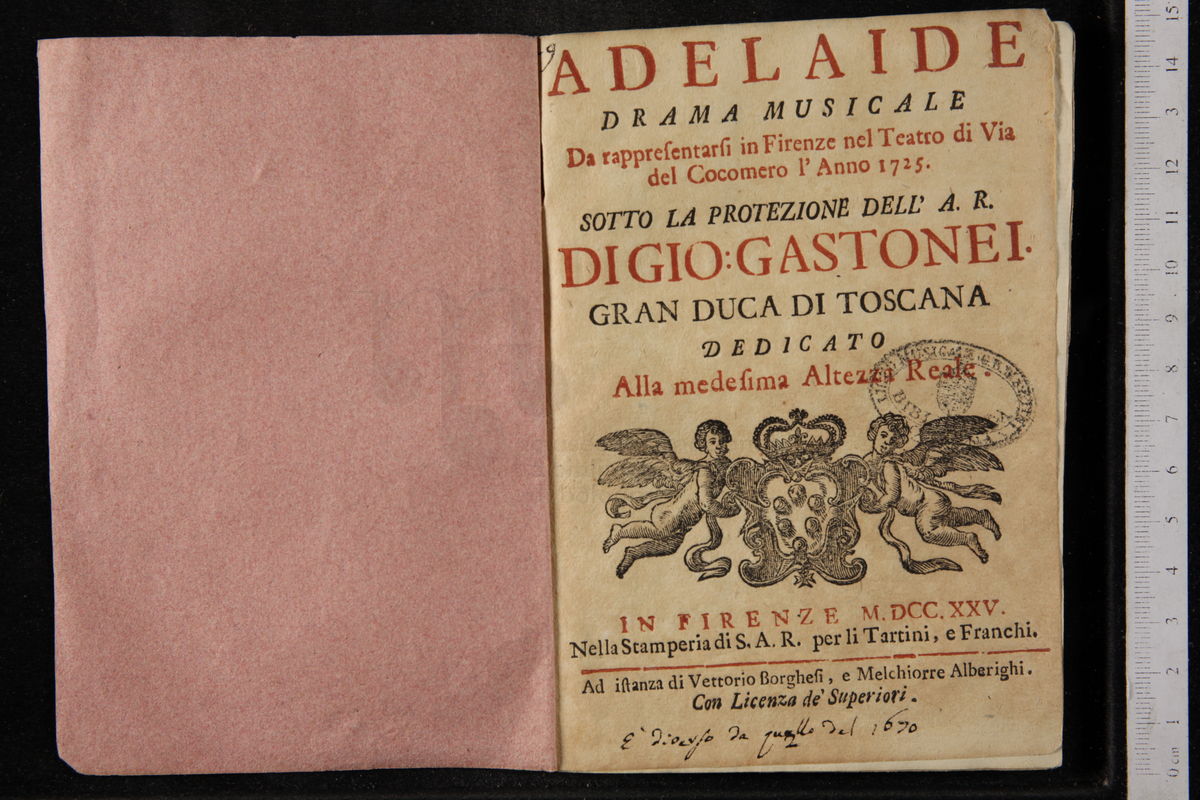 ADELAIDE
DRAMA MUSICALE
Da rappreſentarſi in Firenze nel Teatro di Via
del Cocomero l'Anno 1725.
SOTTO LA PROTEZIONE DELL' A. R.
DI GIO: GASTONE I.
GRAN DUCA DI TOSCANA
DEDICATO
Alla medeſima Altezza Reale.
IN FIRENZE M.DCC.XXV.
Nella Stamperia di S. A. R. per li Tartini, e Franchi.
Ad iſtanza di Vettorio Borgheſi, e Melchiorre Alberighi.
Con Licenza de' Superiori.
È diverso da quello del 1670
0 cm 1 2 3 4 5 6 7 8 9 10 11 12 13 14 15